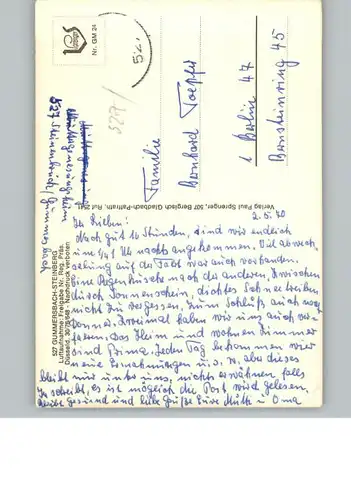 Nr. GM 24
527
527
Familie
Bernhard Toepfer
1 Berlin 47
Bernsteinring 45
527
Verlag Paul Sprenger, 507 Bergisch Gladbach-Paffrath, Ruf
527 GUMMERSBACH-STEINBERG
Luftaufnahme: Freigabe Nr. Reg. Präs.
Düsseld. 30/78/648 · Nachdruck verboten
2.5.70
Ihr Lieben!
Nach gut 10 Stunden, sind wir endlich
um 1/4 1 Uhr nachts angekommen. Viel abwech-
selung auf der Fahrt war auch vorhanden.
Eine Regenhusche nach der anderen, zwischen
durch Sonnenschein, dichtes Schneetreiben
nicht zu vergessen, zum Schluß auch noch
Donner. Zweimal haben wir uns auch ver-
fahren. Das Heim und wohnen Zimmer
sind Prima. Jeden Tag bekommen wir
neue Ermahnungen u.s.w. aber dieses
bleibt nur unter uns, nichts erwähnen falls
Ihr schreibt, es ist möglich die Post wird gelesen.
Bleibt gesund und liebe Grüße Eure Mutti u. Oma